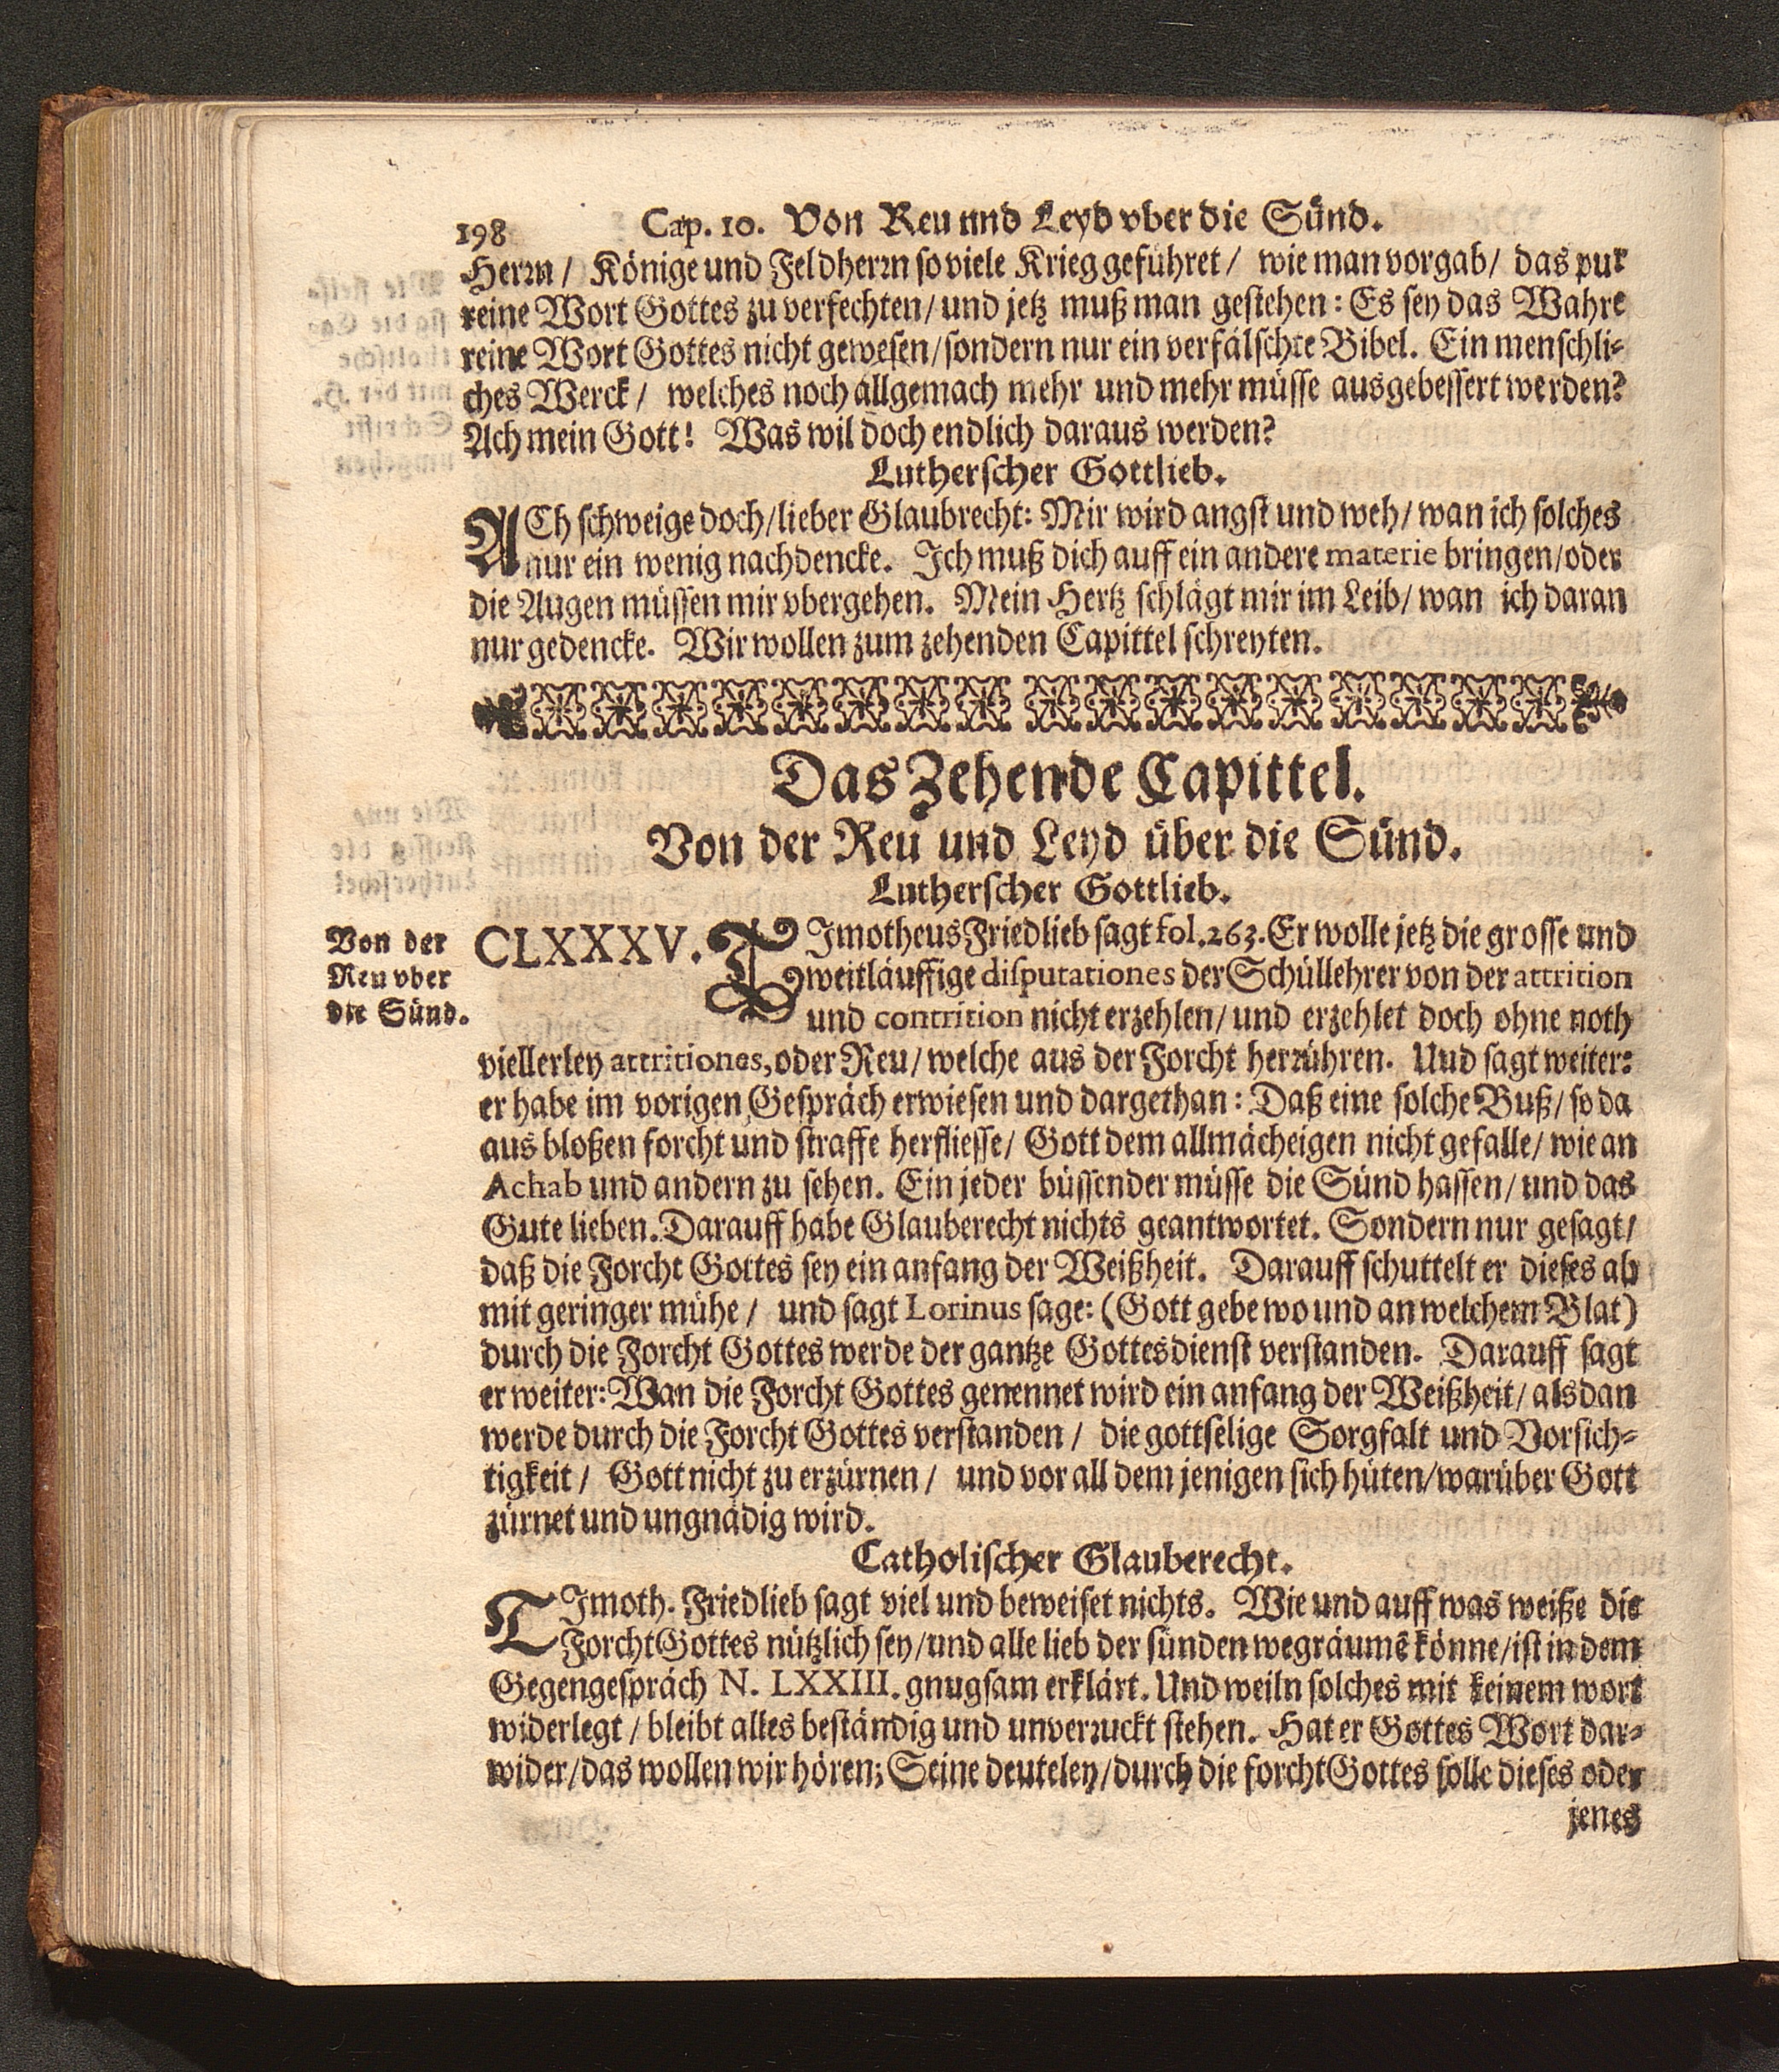 198 Cap. 10. Von Reu nnd Leyd vber die Sünd.
Herrn / Könige und Feldherrn so viele Krieg geführet / wie man vorgab / das pur
reine Wort Gottes zu verfechten / und jetz muß man gestehen: Es sey das Wahre
reine Wort Gottes nicht gewesen / sondern nur ein verfälschte Bibel. Ein menschli-
ches Werck / welches noch allgemach mehr und mehr müsse ausgebessert werden?
Ach mein Gott! Was wil doch endlich daraus werden?
Lutherscher Gottlieb.
ACh schweige doch / lieber Glaubrecht: Mir wird angst und weh / wan ich solches
nur ein wenig nachdencke. Ich muß dich auff ein andere materie bringen / oder
die Augen müssen mir vbergehen. Mein Hertz schlägt mir im Leib / wan ich daran
nur gedencke. Wir wollen zum zehenden Capittel schreyten.
Das Zehende Capittel.
Von der Reu und Leyd über die Sünd.
Lutherscher Gottlieb.
Von der
Reu vber
die Sünd.
CLXXXV. TImotheus Friedlieb sagt fol. 263. Er wolle jetz die grosse und
weitläuffige disputationes der Schüllehrer von der attrition
und contrition nicht erzehlen / und erzehlet doch ohne noth
viellerley attritiones, oder Reu / welche aus der Forcht herrühren. Und sagt weiter:
er habe im vorigen Gespräch erwiesen und dargethan: Daß eine solche Buß / so da
aus bloßen forcht und straffe herfliesse / Gott dem allmächeigen nicht gefalle / wie an
Achab und andern zu sehen. Ein jeder büssender müsse die Sünd hassen / und das
Gute lieben. Darauff habe Glauberecht nichts geantwortet. Sondern nur gesagt /
daß die Forcht Gottes sey ein anfang der Weißheit. Darauff schuttelt er dieses ab
mit geringer mühe / und sagt Lorinus sage: (Gott gebe wo und an welchem Blat)
durch die Forcht Gottes werde der gantze Gottesdienst verstanden. Darauff sagt
er weiter: Wan die Forcht Gottes genennet wird ein anfang der Weißheit / alsdan
werde durch die Forcht Gottes verstanden / die gottselige Sorgfalt und Vorsich-
tigkeit / Gott nicht zu erzürnen / und vor all dem jenigen sich hüten / warüber Gott
zürnet und ungnädig wird.
Catholischer Glauberecht.
TImoth. Friedlieb sagt viel und beweiset nichts. Wie und auff was weiße die
Forcht Gottes nützlich sey / und alle lieb der sünden wegräumē könne / ist in dem
Gegengespräch N. LXXIII. gnugsam erklärt. Und weiln solches mit keinem wort
widerlegt / bleibt alles beständig und unverruckt stehen. Hat er Gottes Wort dar-
wider / das wollen wir hören; Seine deuteley / durch die forcht Gottes solle dieses oder
jenes